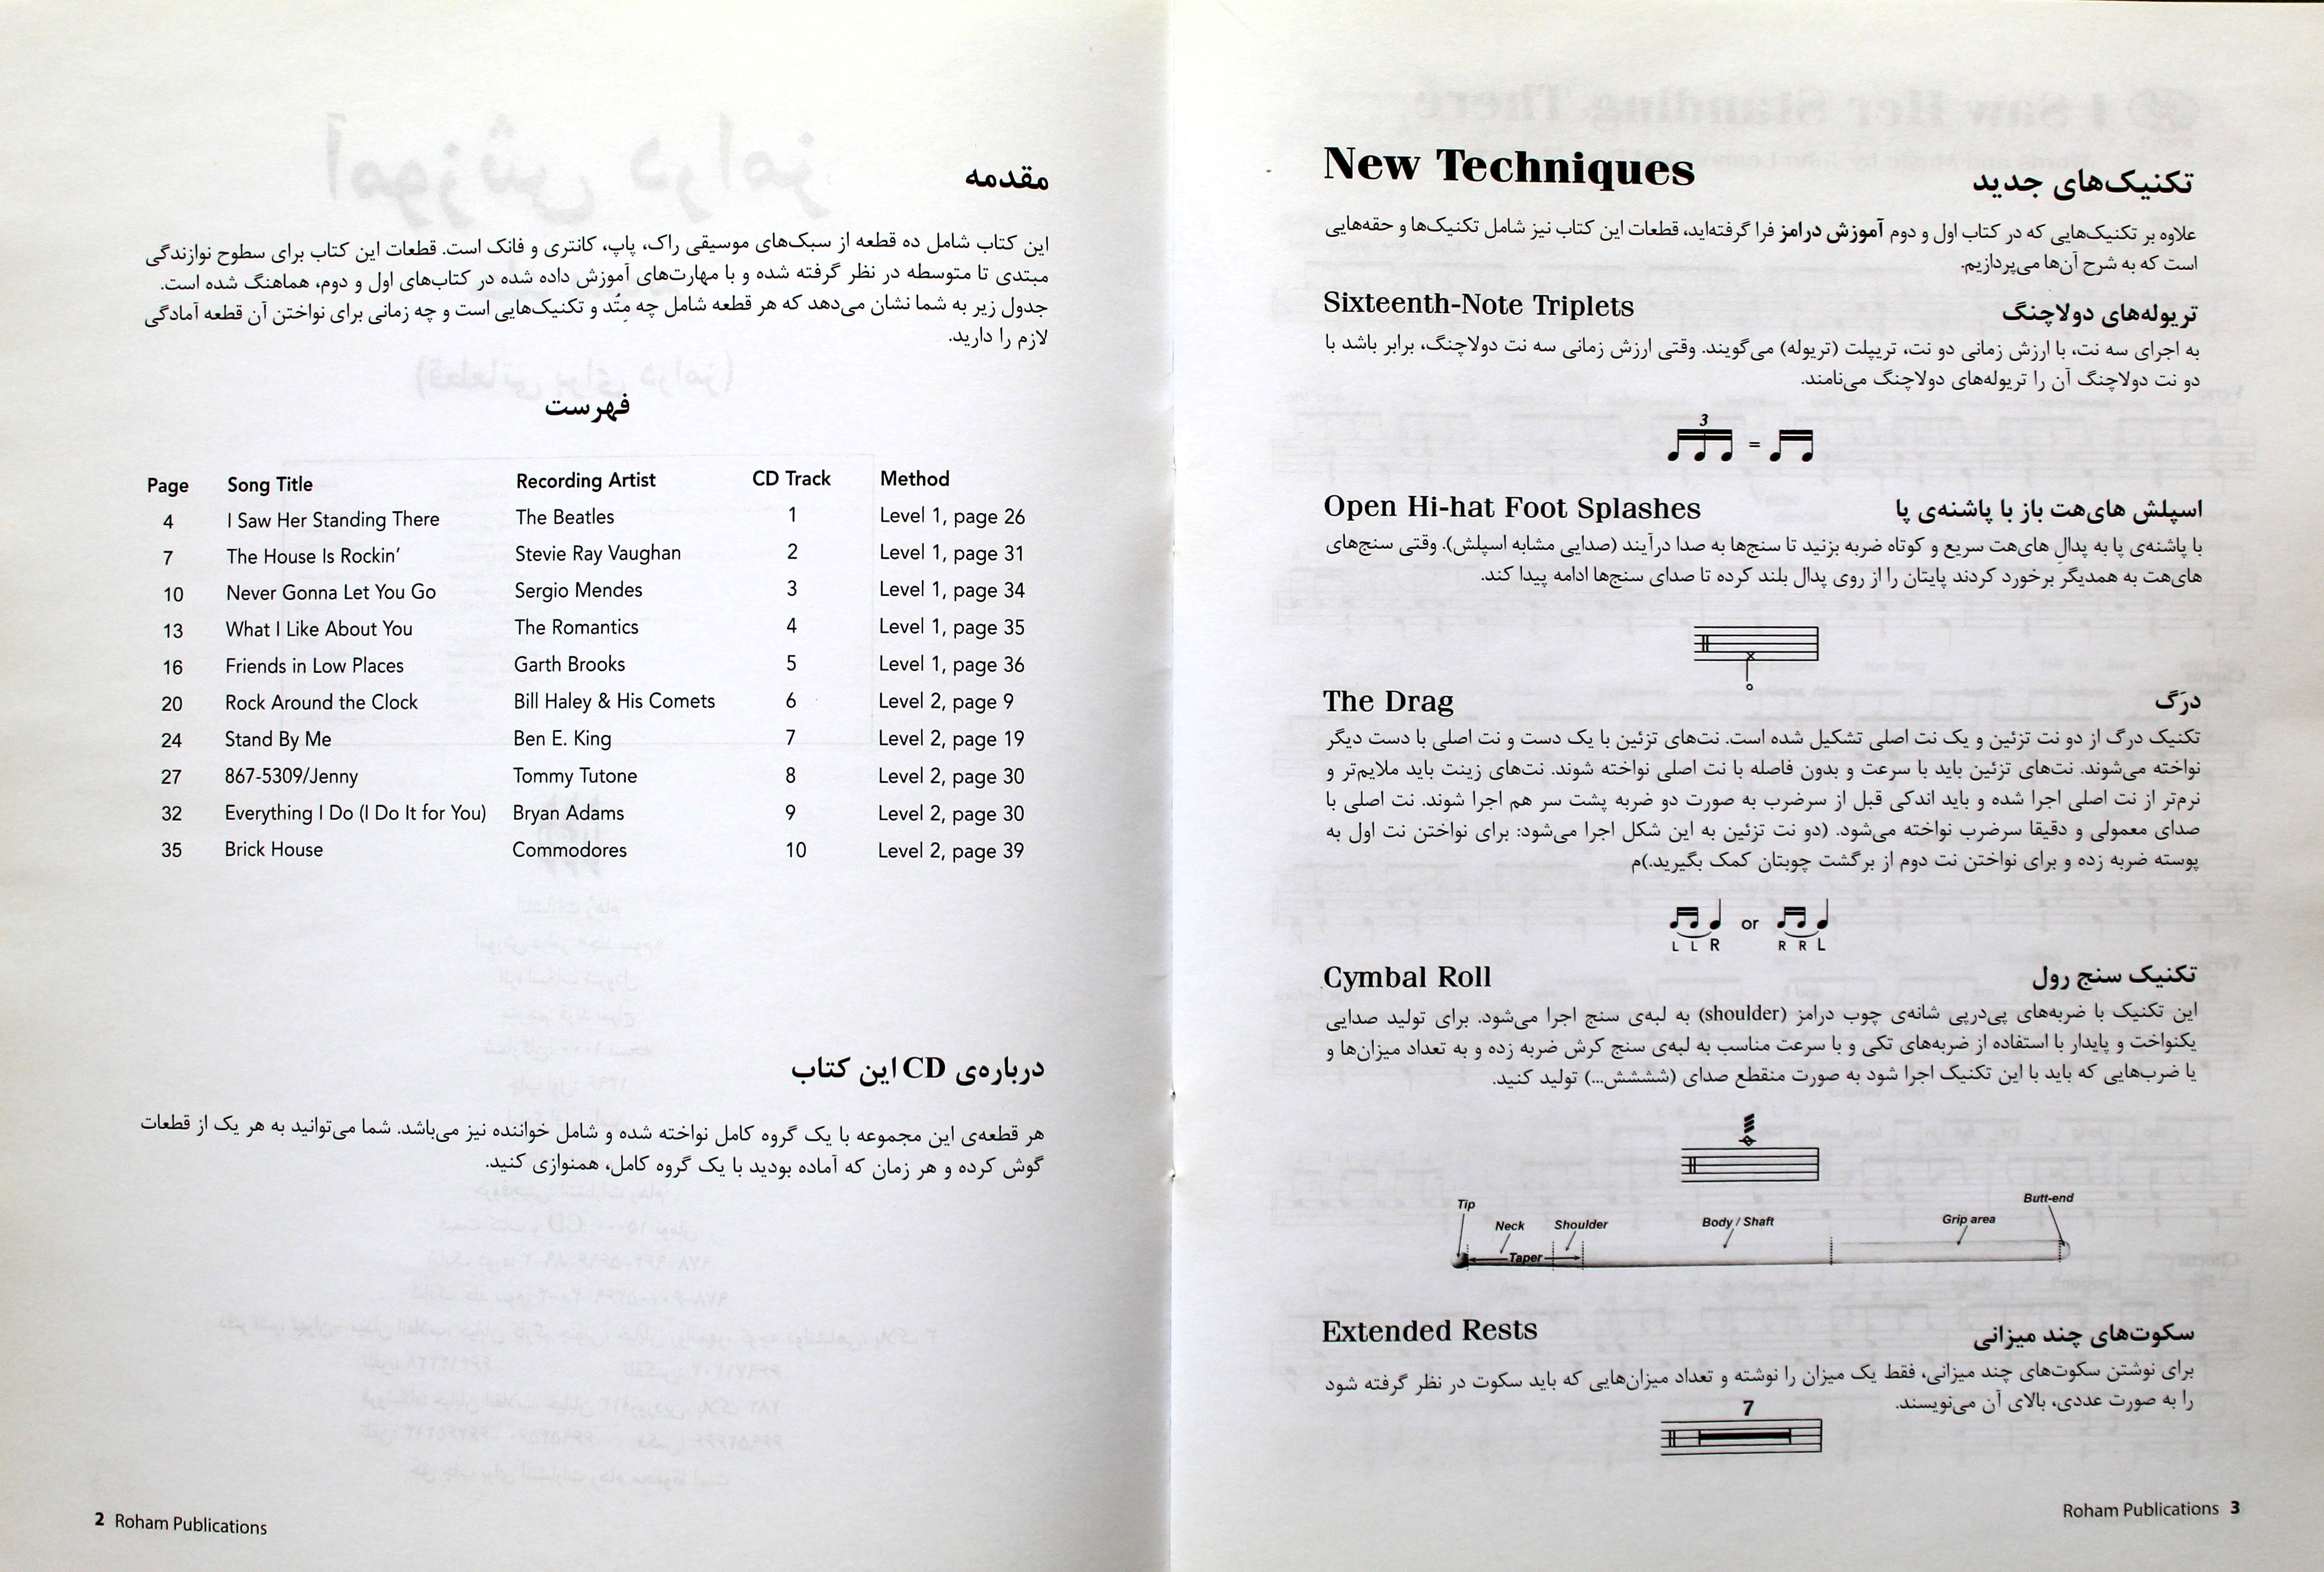 مقدمه
این کتاب شامل ده قطعه از سبک‌های موسیقی راک، پاپ، کانتری و فانک است. قطعات این کتاب برای سطوح نوازندگی
مبتدی تا متوسطه در نظر گرفته شده و با مهارت‌های آموزش داده شده در کتاب‌های اول و دوم، هماهنگ شده است.
جدول زیر به شما نشان می‌دهد که هر قطعه شامل چه مِتُد و تکنیک‌هایی است و چه زمانی برای نواختن آن قطعه آمادگی
لازم را دارید.
فهرست
Page Song Title Recording Artist CD Track Method
4 I Saw Her Standing There The Beatles 1 Level 1, page 26
7 The House Is Rockin’ Stevie Ray Vaughan 2 Level 1, page 31
10 Never Gonna Let You Go Sergio Mendes 3 Level 1, page 34
13 What I Like About You The Romantics 4 Level 1, page 35
16 Friends in Low Places Garth Brooks 5 Level 1, page 36
20 Rock Around the Clock Bill Haley & His Comets 6 Level 2, page 9
24 Stand By Me Ben E. King 7 Level 2, page 19
27 867-5309/Jenny Tommy Tutone 8 Level 2, page 30
32 Everything I Do (I Do It for You) Bryan Adams 9 Level 2, page 30
35 Brick House Commodores 10 Level 2, page 39
درباره‌ی CD این کتاب
هر قطعه‌ی این مجموعه با یک گروه کامل نواخته شده و شامل خواننده نیز می‌باشد. شما می‌توانید به هر یک از قطعات
گوش کرده و هر زمان که آماده بودید با یک گروه کامل، همنوازی کنید.
2 Roham Publications
New Techniques تکنیک‌های جدید
علاوه بر تکنیک‌هایی که در کتاب اول و دوم آموزش درامز فرا گرفته‌اید، قطعات این کتاب نیز شامل تکنیک‌ها و حقه‌هایی
است که به شرح آن‌ها می‌پردازیم.
Sixteenth-Note Triplets تریوله‌های دولاچنگ
به اجرای سه نت، با ارزش زمانی دو نت، تریپلت (تریوله) می‌گویند. وقتی ارزش زمانی سه نت دولاچنگ، برابر باشد با
دو نت دولاچنگ آن را تریوله‌های دولاچنگ می‌نامند.
3
=
Open Hi-hat Foot Splashes اسپلش های‌هت باز با پاشنه‌ی پا
با پاشنه‌ی پا به پدالِ های‌هت سریع و کوتاه ضربه بزنید تا سنج‌ها به صدا درآیند (صدایی مشابه اسپلش). وقتی سنج‌های
های‌هت به همدیگر برخورد کردند پایتان را از روی پدال بلند کرده تا صدای سنج‌ها ادامه پیدا کند.
The Drag درَگ
تکنیک درگ از دو نت تزئین و یک نت اصلی تشکیل شده است. نت‌های تزئین با یک دست و نت اصلی با دست دیگر
نواخته می‌شوند. نت‌های تزئین باید با سرعت و بدون فاصله با نت اصلی نواخته شوند. نت‌های زینت باید ملایم‌تر و
نرم‌تر از نت اصلی اجرا شده و باید اندکی قبل از سرضرب به صورت دو ضربه پشت سر هم اجرا شوند. نت اصلی با
صدای معمولی و دقیقا سرضرب نواخته می‌شود. (دو نت تزئین به این شکل اجرا می‌شود: برای نواختن نت اول به
پوسته ضربه زده و برای نواختن نت دوم از برگشت چوبتان کمک بگیرید.)م
or
L L R R R L
Cymbal Roll تکنیک سنج رول
این تکنیک با ضربه‌های پی‌درپی شانه‌ی چوب درامز (shoulder) به لبه‌ی سنج اجرا می‌شود. برای تولید صدایی
یکنواخت و پایدار با استفاده از ضربه‌های تکی و با سرعت مناسب به لبه‌ی سنج کرش ضربه زده و به تعداد میزان‌ها و
یا ضرب‌هایی که باید با این تکنیک اجرا شود به صورت منقطع صدای (شششش...) تولید کنید.
Tip Neck Shoulder Body / Shaft Grip area Butt-end
Taper
Extended Rests سکوت‌های چند میزانی
برای نوشتن سکوت‌های چند میزانی، فقط یک میزان را نوشته و تعداد میزان‌هایی که باید سکوت در نظر گرفته شود
را به صورت عددی، بالای آن می‌نویسند.
7
Roham Publications 3